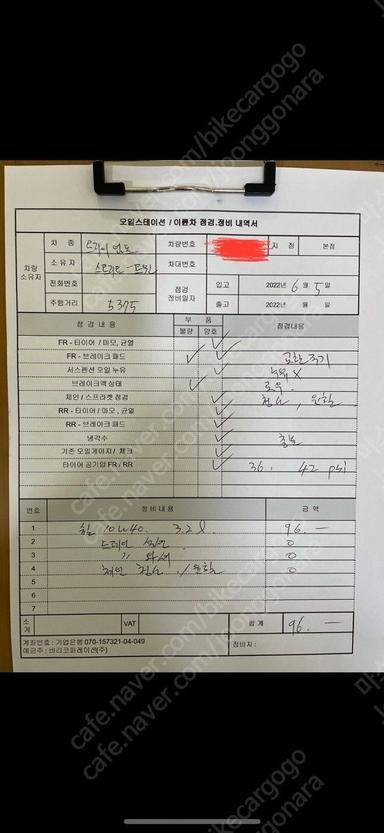 오일스테이션 / 이륜차 점검.정비 내역서
차량 소유자
차 종 트라이엄프
차량번호
지 점 본점
소 유 자 스트리트-트윈
차대번호
전화번호
점검 정비일자
입고 2022년 6월 5일
주행거리 5375
출고 2022년 월 일
점 검 내 용 부 품 점검내용
불량 양호
FR - 타이어 / 마모, 균열
FR - 브레이크 패드 교환주기
서스펜션 오일 누유 누유 X
브레이크액 상태
체인 / 스프라켓 점검 청소, 윤활
RR - 타이어 / 마모, 균열
RR - 브레이크 패드
냉각수
기존 오일게이지 / 체크
타이어 공기압 FR / RR 36. 42 psi
번호 정비내용 금 액
1 10w40. 3.2ℓ. 96.-
2 드레인 0
3 〃 와셔 0
4 체인 청소 / 윤활 0
5
6
7
소 계 VAT 합 계 96.-
계좌번호 : 기업은행 070-157321-04-049
예금주 : 바리코퍼레이션(주)
정비자 :
cafe.naver.com/bikecargogo
cafe.naver.com/joonggonara